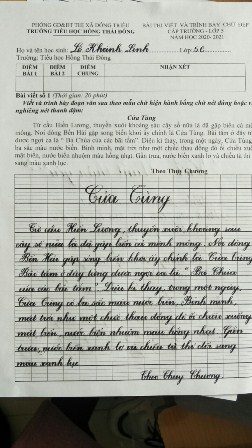 PHÒNG GD&ĐT THỊ XÃ ĐÔNG TRIỀU
TRƯỜNG TIỂU HỌC HỒNG THÁI ĐÔNG
BÀI THI VIẾT VÀ TRÌNH BÀY CHỮ ĐẸP
CẤP TRƯỜNG - LỚP 5
NĂM HỌC 2020 - 2021
Họ và tên học sinh: Lê Khánh Linh Lớp 5C
Trường: Tiểu học Hồng Thái Đông
ĐIỂM BÀI 1
ĐIỂM BÀI 2
ĐIỂM CHUNG
NHẬN XÉT
Bài viết số 1 (Thời gian: 20 phút)
Viết và trình bày đoạn văn sau theo mẫu chữ hiện hành bằng chữ nét đứng hoặc
nghiêng nét thanh đậm:
Cửa Tùng
Từ cầu Hiền Lương, thuyền xuôi khoảng sáu cây số nữa là đã gặp biển cả
mông. Nơi dòng Bến Hải gặp sóng biển khơi ấy chính là Cửa Tùng. Bãi tắm ở đây
được ngợi ca là " Bà Chúa của các bãi tắm". Diệu kì thay, trong một ngày, Cửa Tùng
ba sắc màu nước biển. Bình minh, mặt trời như một chiếc thau đồng đỏ ối chiếu xuống
mặt biển, nước biển nhuộm màu hồng nhạt. Gần trưa, nước biển xanh lơ và chiều tà thì
sang màu xanh lục.
Theo Thụy Chương
Cửa Tùng
Từ cầu Hiền Lương, thuyền xuôi khoảng sáu
cây số nữa là đã gặp biển cả mênh mông. Nơi dòng
Bến Hải gặp sóng biển khơi ấy chính là Cửa Tùng.
Bãi tắm ở đây từng được ngợi ca là " Bà Chúa
của các bãi tắm". Diệu kì thay, trong một ngày,
Cửa Tùng có ba sắc màu nước biển. Bình minh,
mặt trời như một chiếc thau đồng đỏ ối chiếu xuống
mặt biển, nước biển nhuộm màu hồng nhạt. Gần
trưa, nước biển xanh lơ và chiều tà thì đổi sang
màu xanh lục.
Theo Thụy Chương.